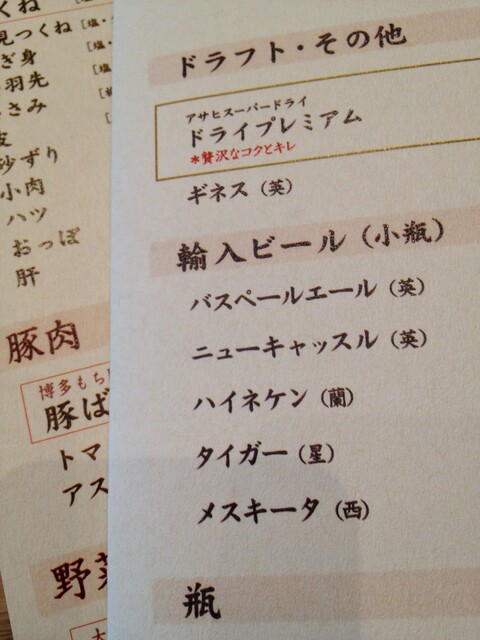 くね
見つくね
ぎ身
羽先
さみ
皮
砂ずり
小肉
ハツ
おっぽ
肝
豚肉
博多もち
豚ば
トマ
アス
野菜
ドラフト・その他
アサヒスーパードライ
ドライプレミアム
*贅沢なコクとキレ
ギネス（英）
輸入ビール（小瓶）
バスペールエール（英）
ニューキャッスル（英）
ハイネケン（蘭）
タイガー（星）
メスキータ（西）
瓶